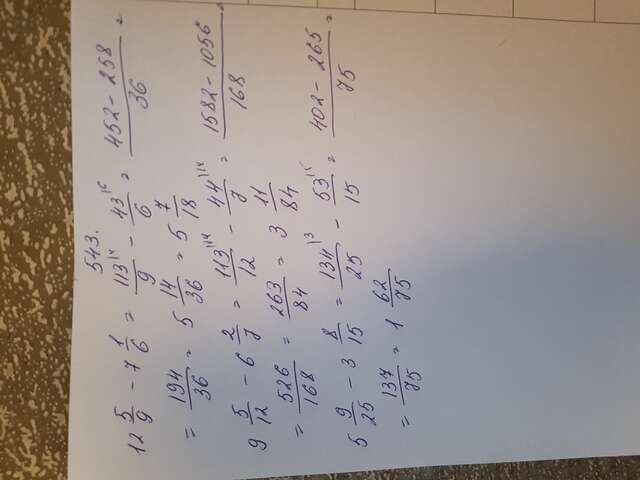 543.
12 5/9 - 7 1/6 = 113/9 |4 - 43/6 |6 = 452 - 258/36 =
= 194/36 = 5 14/36 = 5 7/18
9 5/12 - 6 2/7 = 113/12 |14 - 44/7 |14 = 1582 - 1056/168 =
= 526/168 = 263/84 = 3 11/84
5 9/25 - 3 8/15 = 134/25 |3 - 53/15 |5 = 402 - 265/75 =
= 137/75 = 1 62/75